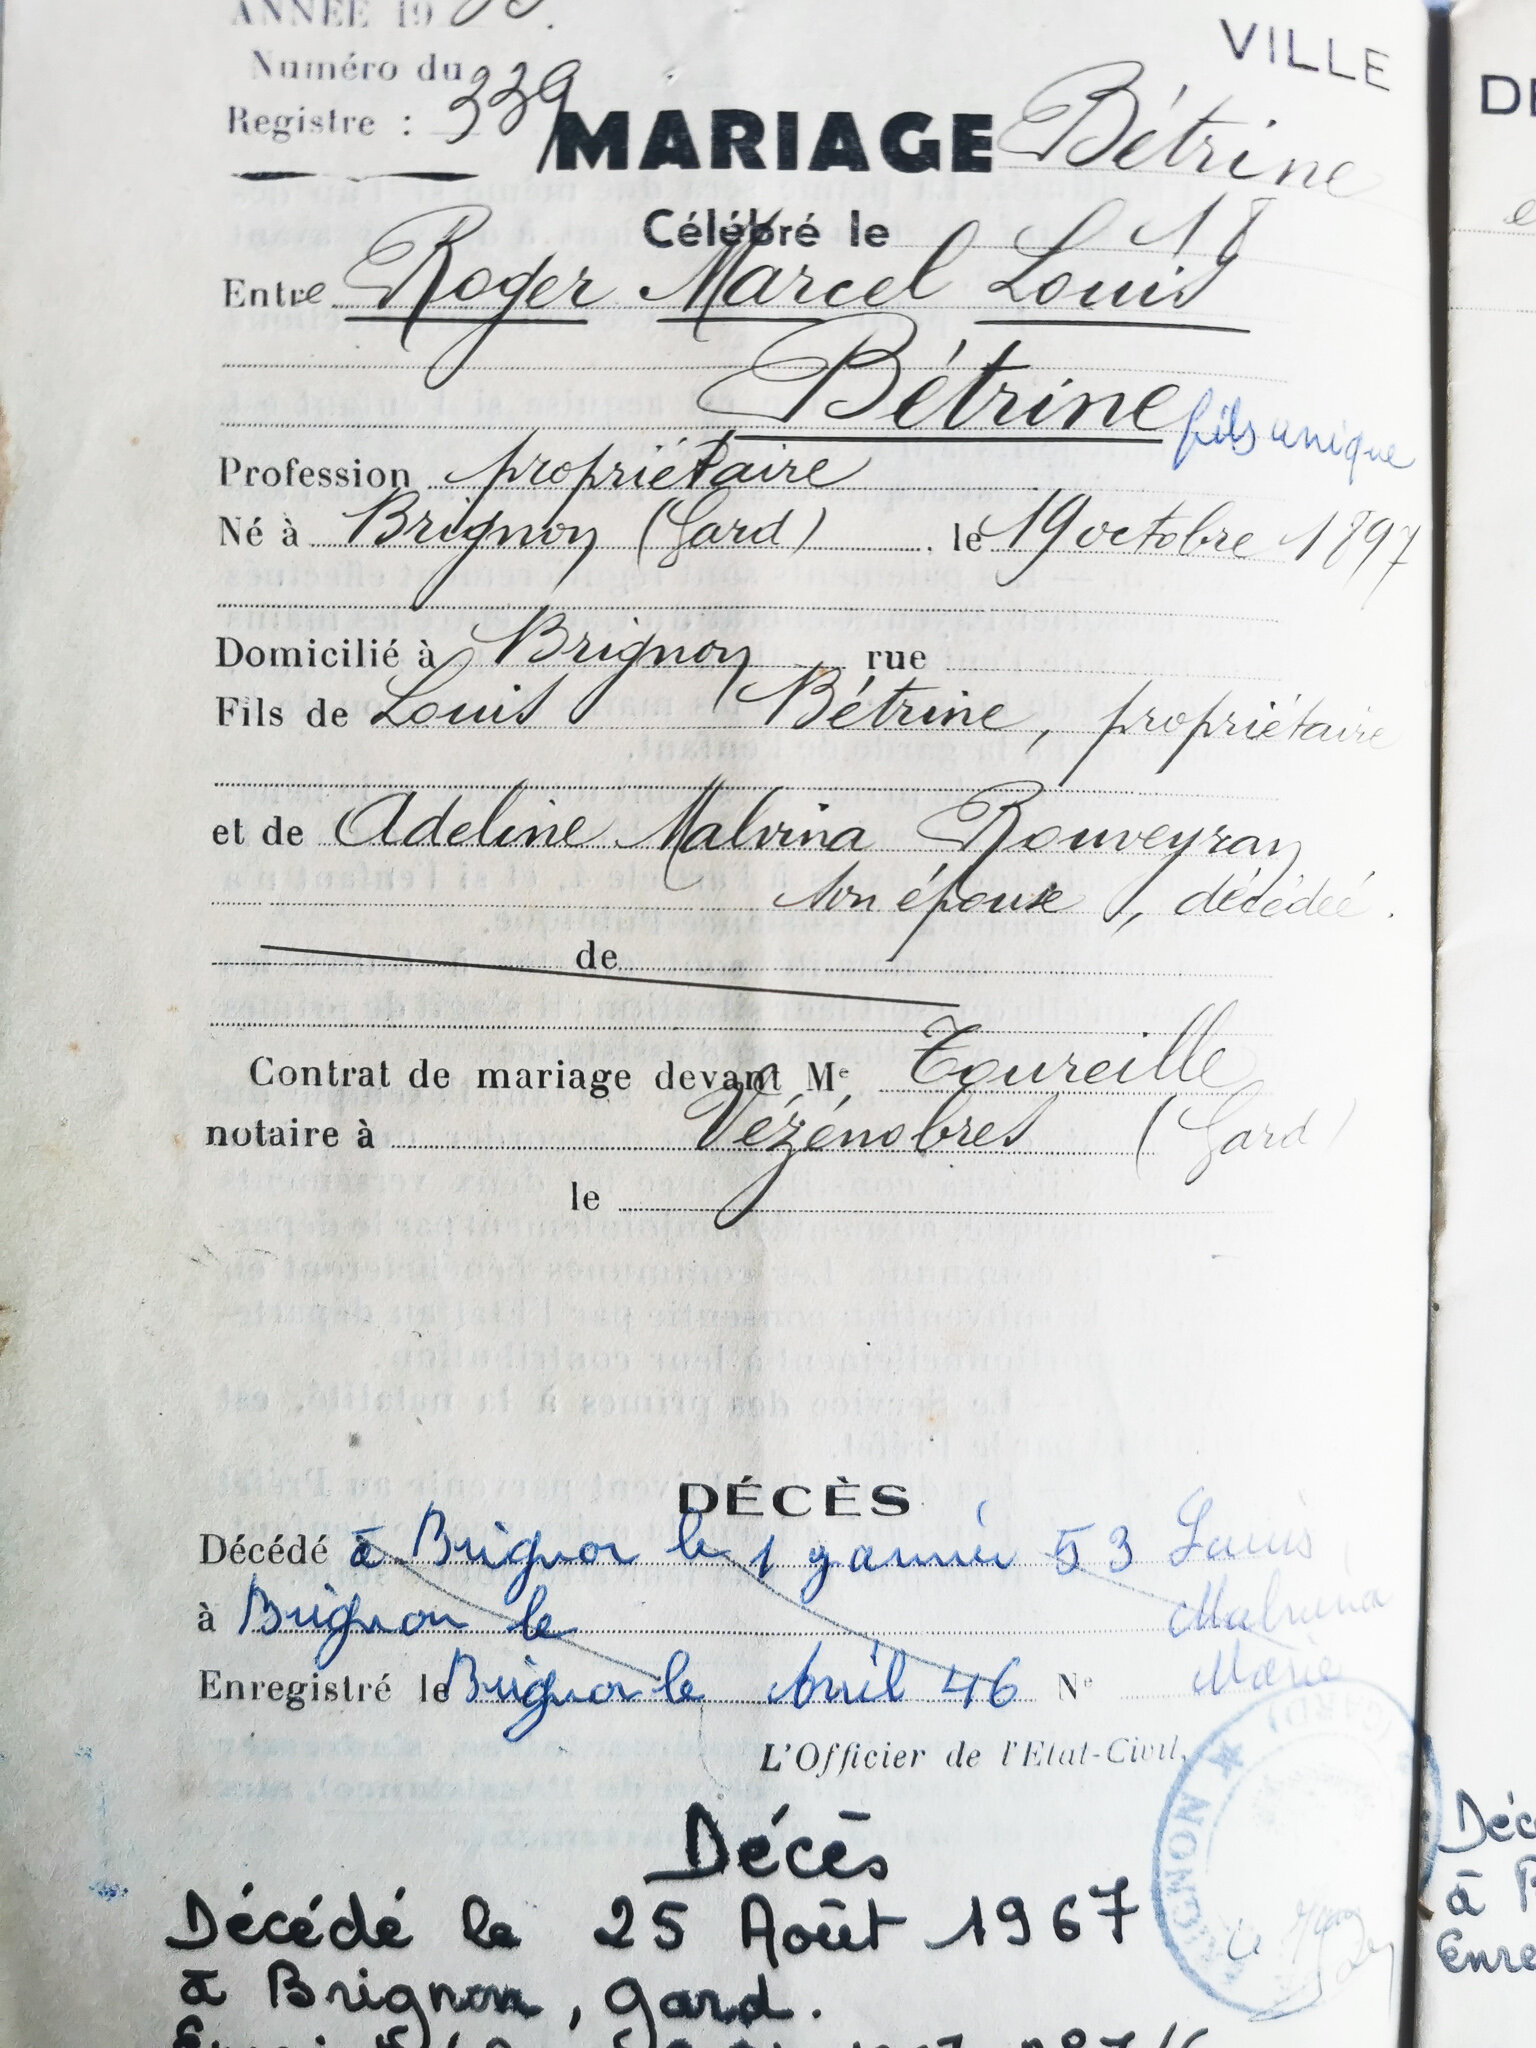 ANNÉE 19
VILLE
Numéro du
Registre : 339
MARIAGE Bétrine
Célébré le 18
Entre Roger Marcel Louis
Bétrine fils unique
Profession propriétaire
Né à Brignon (Gard) le 19 octobre 1897
Domicilié à Brignon rue
Fils de Louis Bétrine, propriétaire
et de Adeline Malvina Rouveyran
son épouse, décédée.
de
Contrat de mariage devant Me Toureille
notaire à Vézénobres (Gard)
le
DÉCÈS
Décédé à Brignon le 1 janvier 53 Louis
à Brignon le Malvina
Enregistré le Brignon le Avril 46 No Marie
L'Officier de l'Etat-Civil,
Décès
Décédé le 25 Août 1967
à Brignon, Gard.